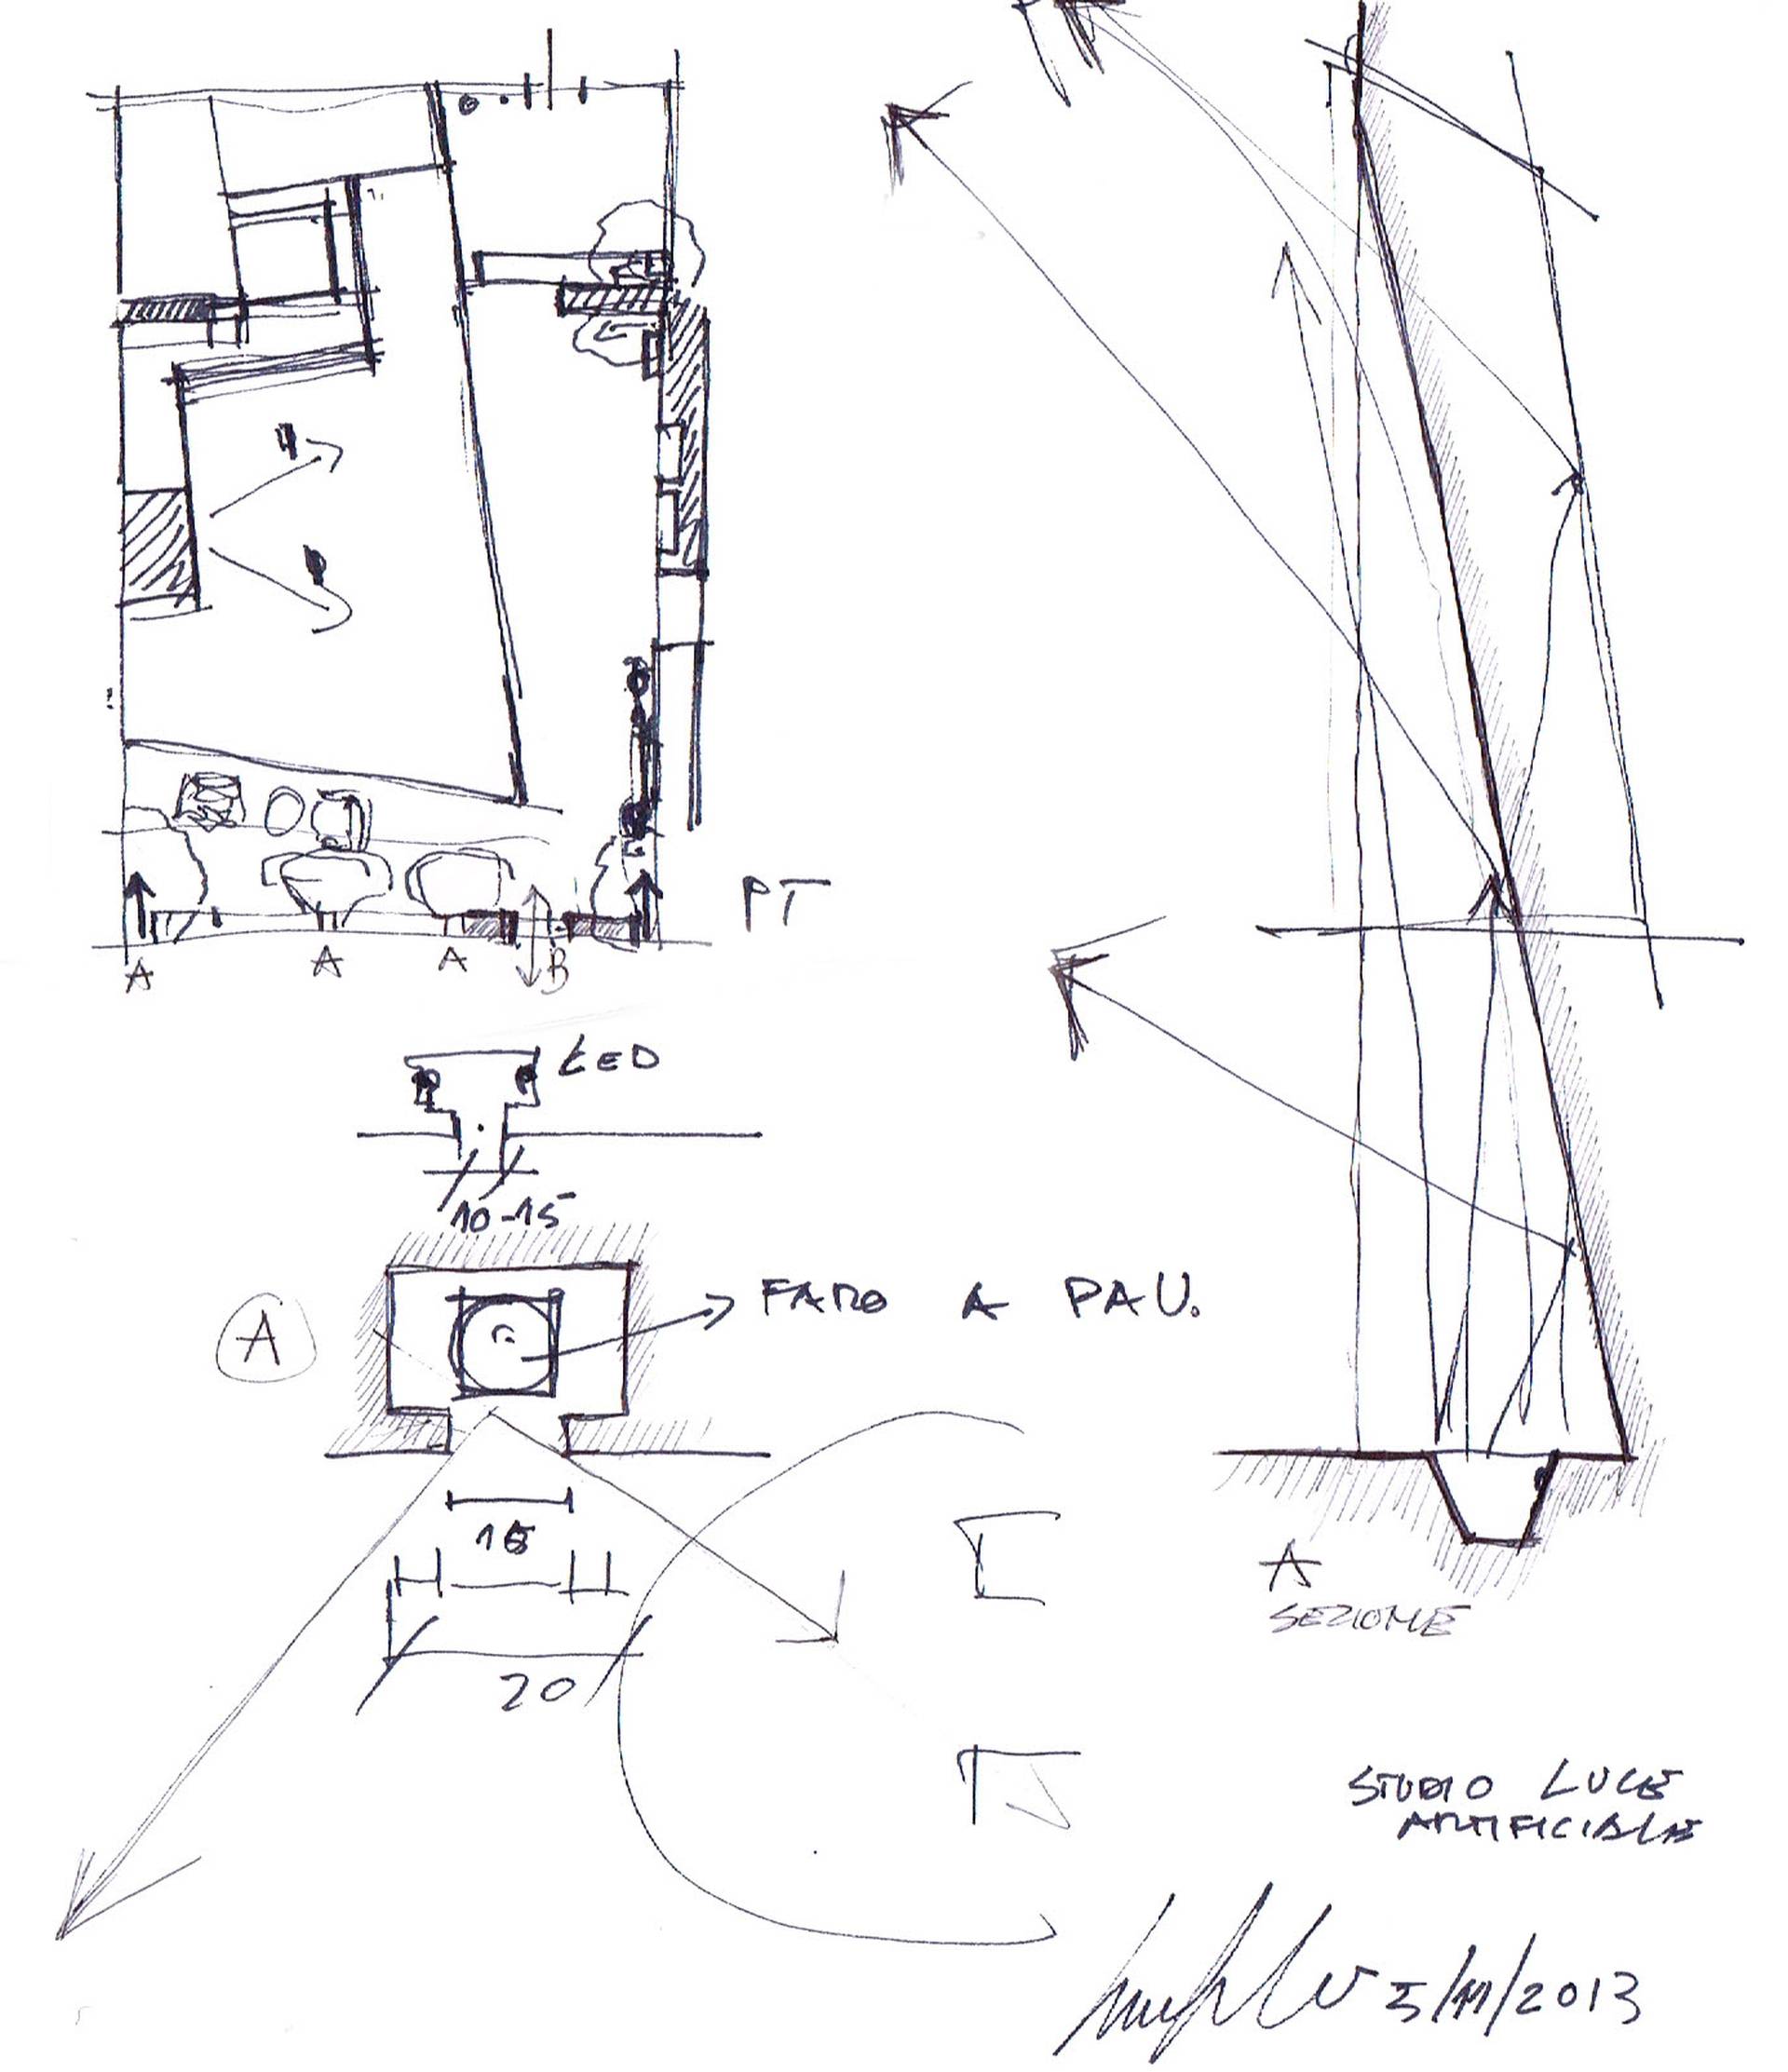 PT
A
A
A
B
LED
10-15
A
FARO A PAV.
15
20
A
SEZIONE
STUDIO LUCE
ARTIFICIALE
5/11/2013